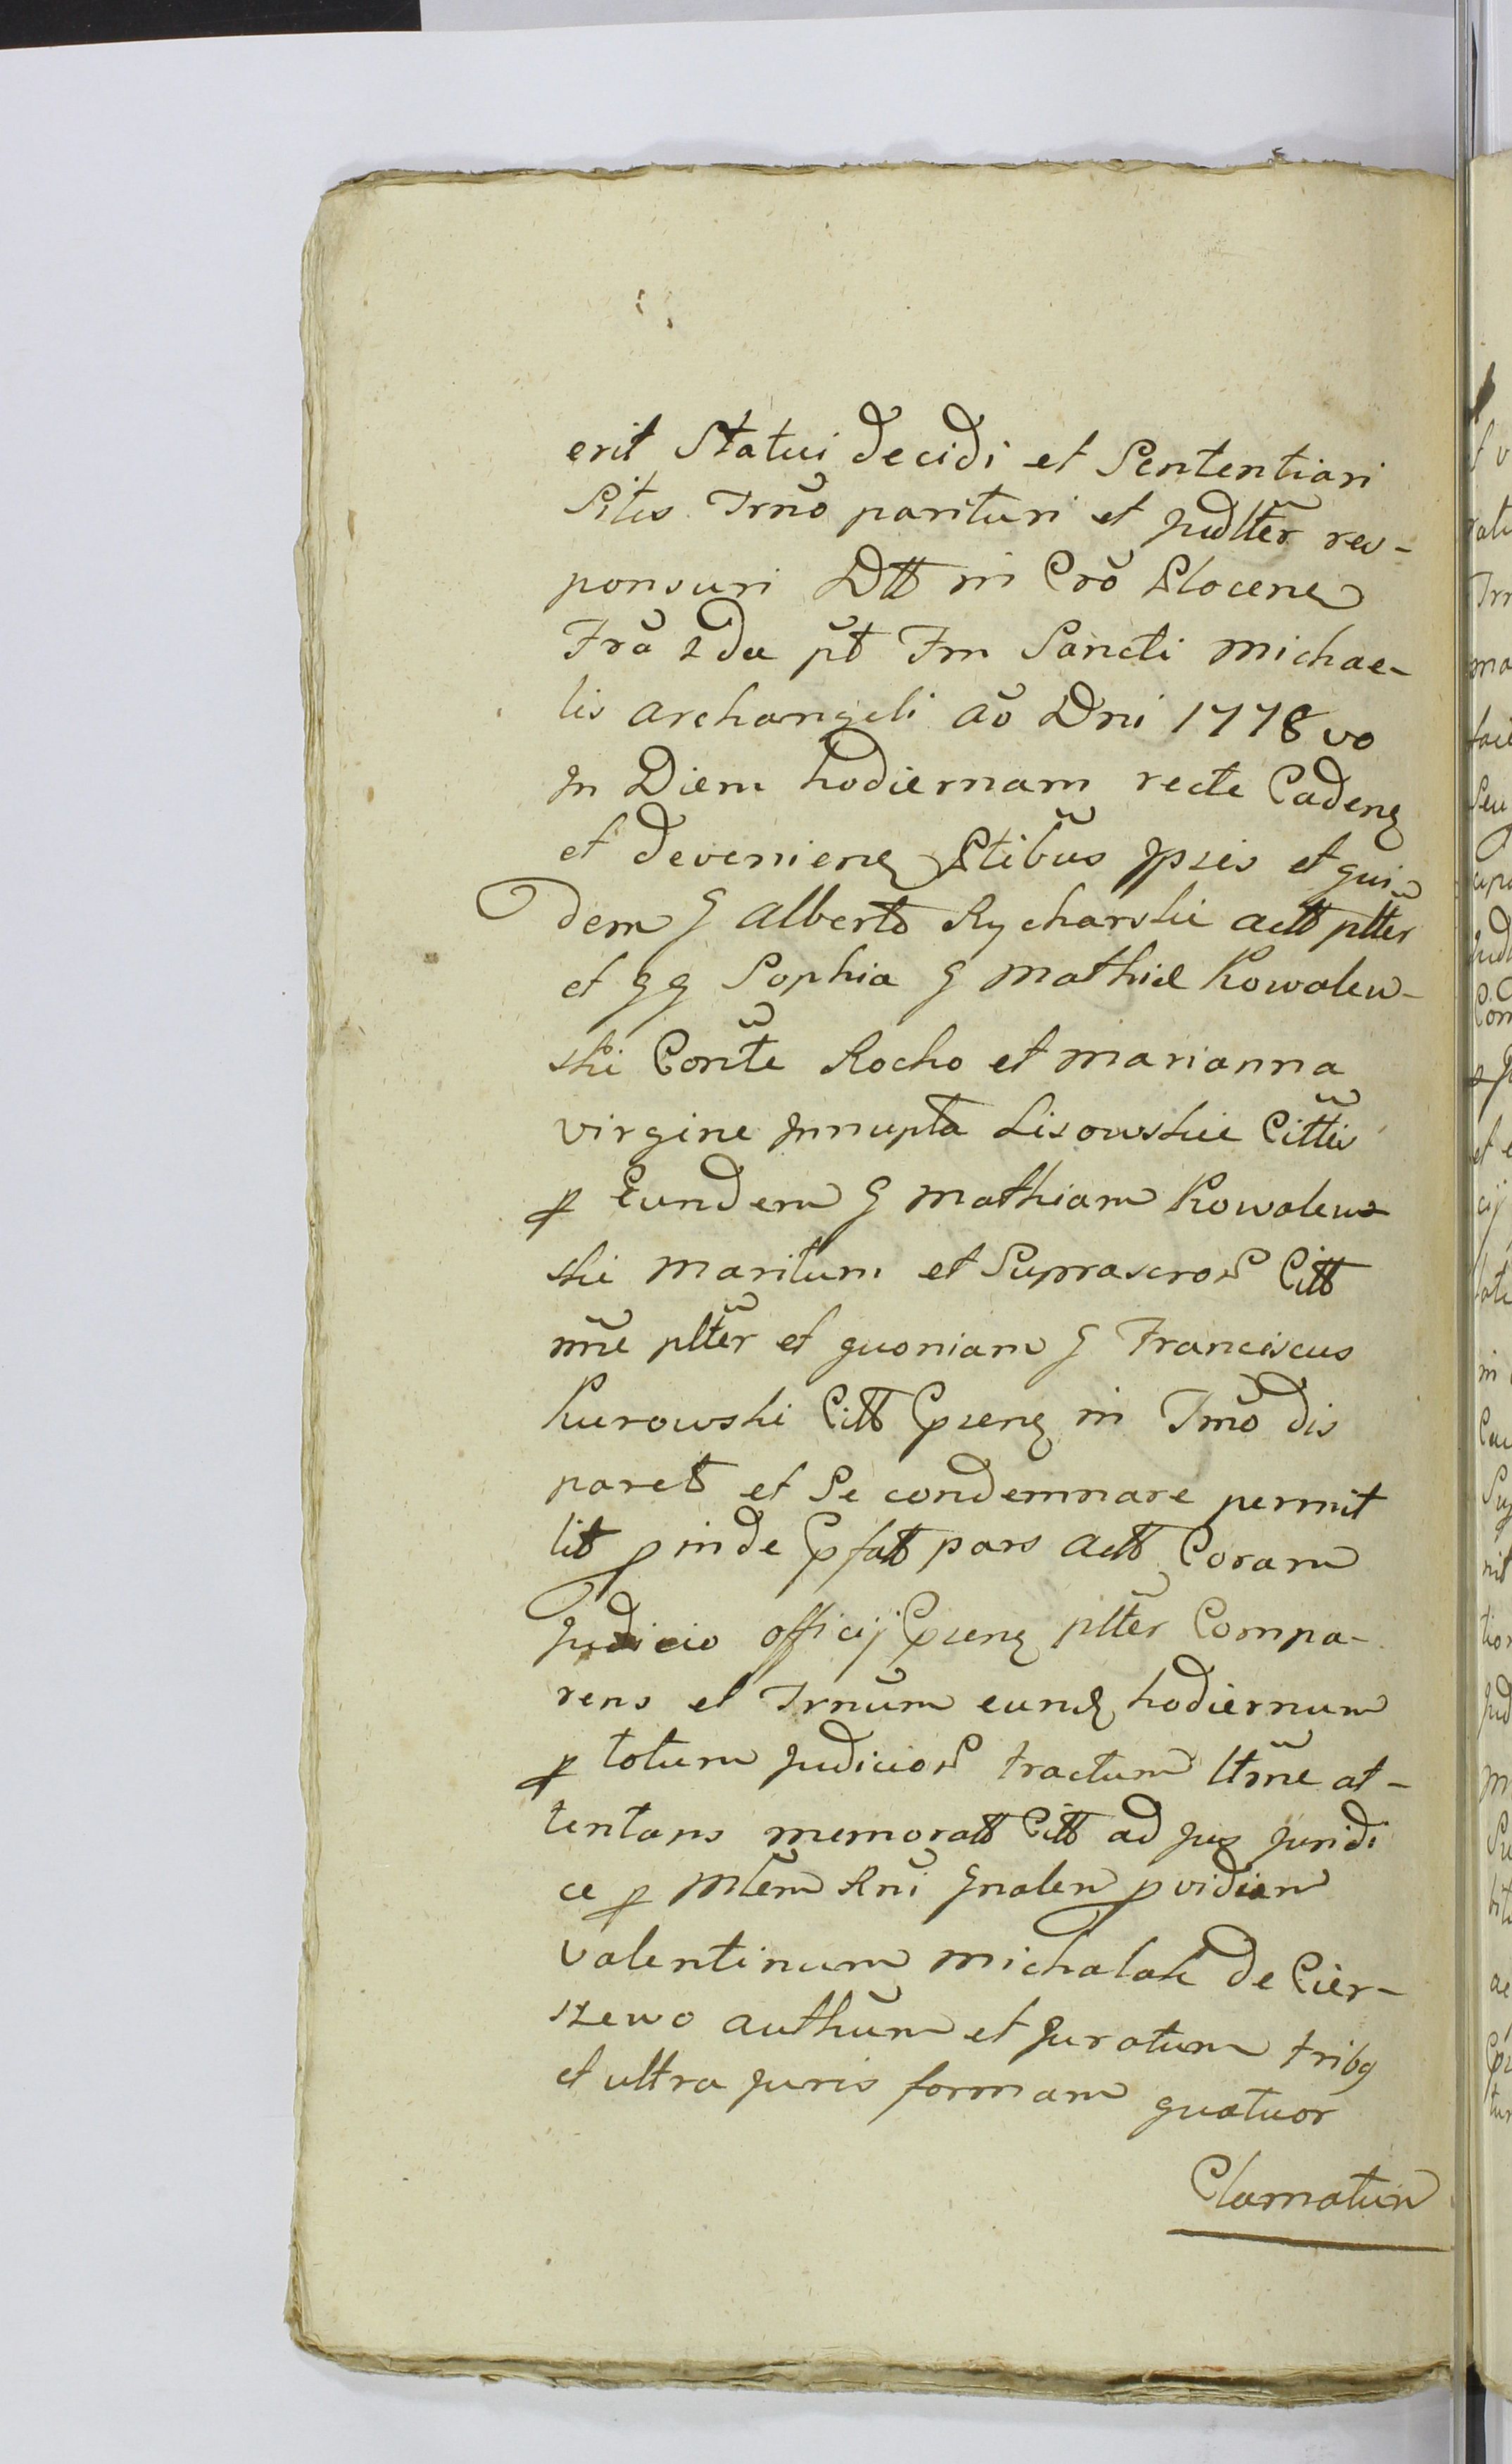 erit Statui decidi et Sententiari
Sitis Trnõ parituri et Judltẽr res-
ponsuri Dtt in Crõ Plocenẽ
Frã 2da p̃t Fm Sancti Michae-
lis Archangeli Aõ Dni 1778vo
In Diem hodiernam recte Cadenẽ
et devenienẽ Ptibũs Ipsis et qui-
dem G Alberto Rycharski Actt pltẽr
et GG Sophia G Mathiæ Kowalew-
ski Conte Rocho et Marianna
Virgine Innupta Lisowskie Cittis
p Eundem G Mathiam Kowalew-
ski Maritum et Suprascror Citt
nñe pltẽr et quoniam G Franciscus
Kurowski Citt Cpsenẽ in Trnõ dis
paret et Se condemnare permit
tit pinde Cpfatt pars Actt Coram
Judicio Officij Cpsenẽ pltẽr Compa-
rens et Trnũm eund hodiernum
p totum Judicior tractum ltm̃e at-
tentans memoratt Citt ad Jus Juridi
ce p Mlẽm Rnĩ Gnalem pvidum
Valentinum Michalak de Cier-
szewo authũm et Juratum tribq
et ultra Juris formam quatuor
Clamatum